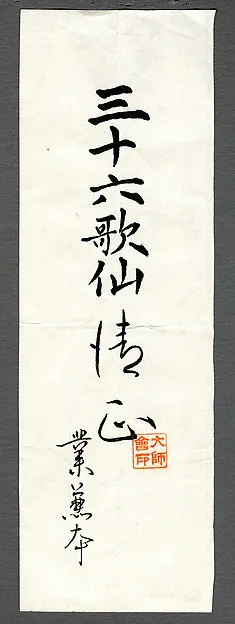 三十六歌仙
情正
業兼本
大師
會印